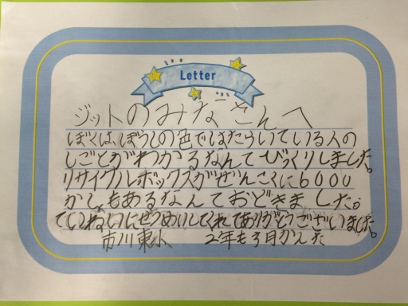 Letter
ジットのみなさんへ
ぼくは、ぼうしの色ではたらいている人の
しごとがわかるなんてびっくりしました。
リサイクルボックスがぜんこくに6000
かしもあるなんておどきました。
ていねいにせつめいしてくれてありがとうございました。
市川東小 2年も3月かんた